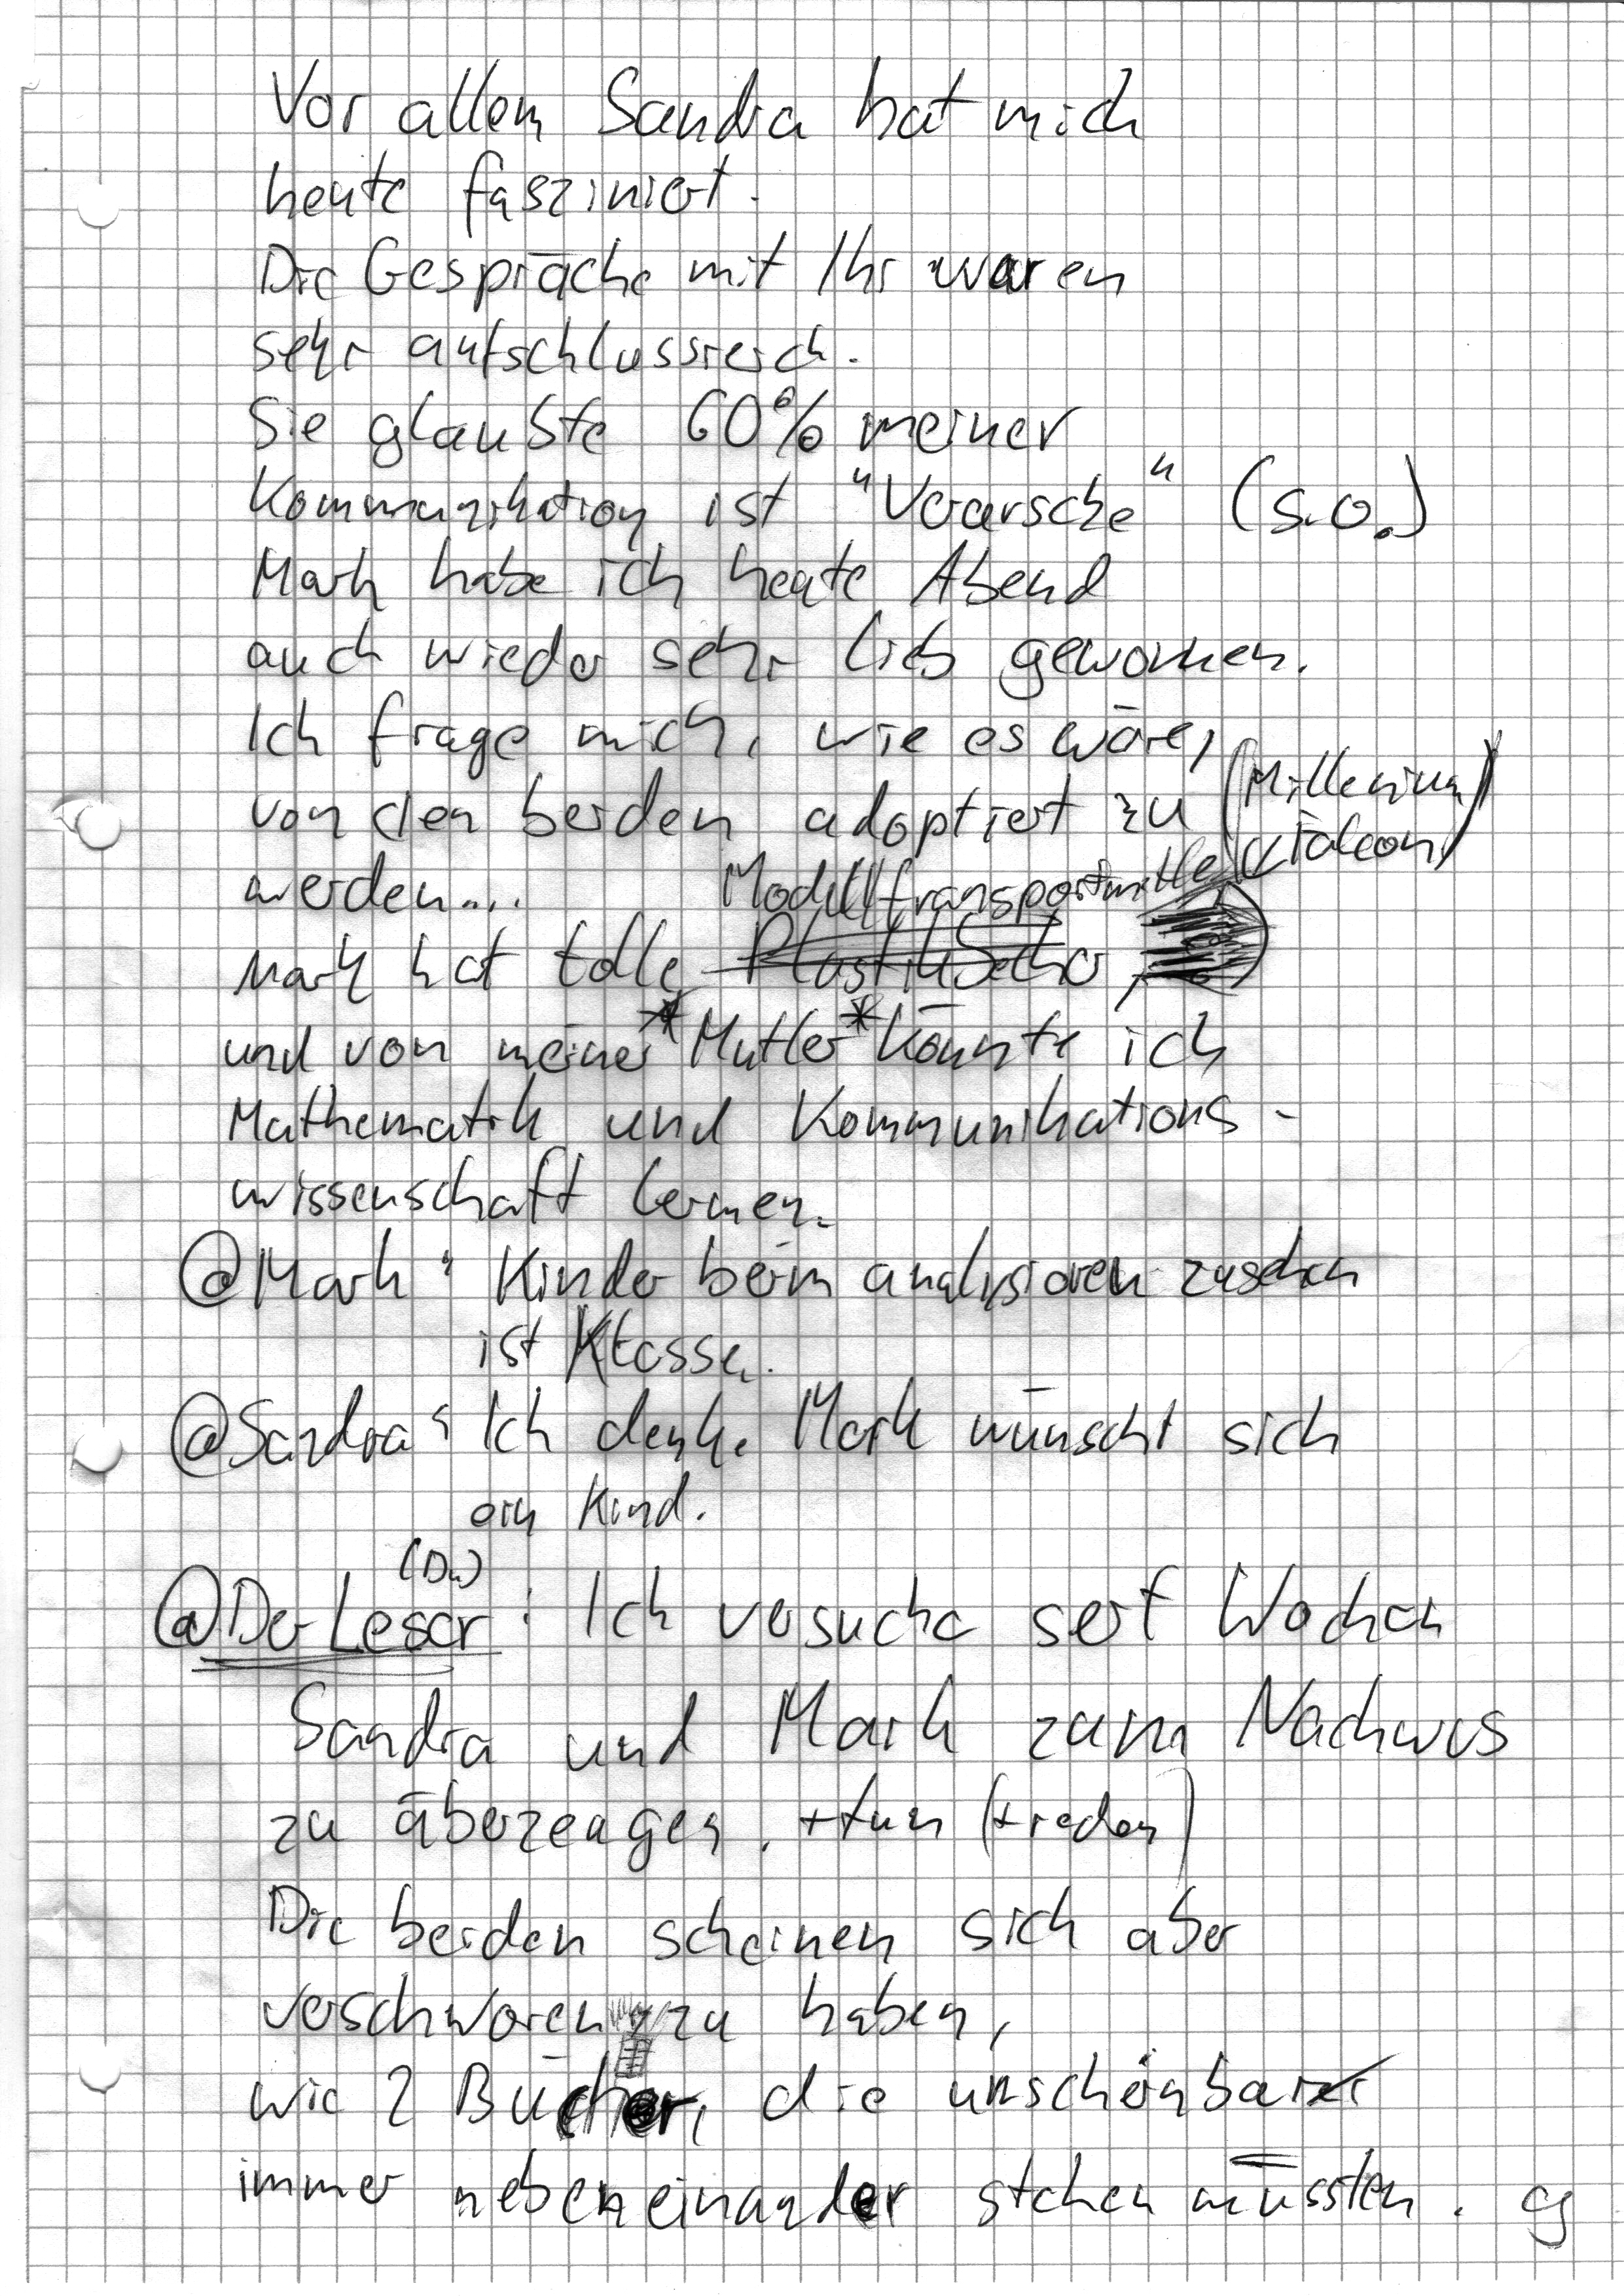 Vor allem Sandra hat mich
heute fasziniert.
Die Gespräche mit Ihr waren
sehr aufschlussreich.
Sie glaubte 60% meiner
Kommunikation ist "Verarsche" (s.o.)
Mark habe ich heute Abend
auch wieder sehr lieb gewonnen.
Ich frage mich, wie es wäre,
von den beiden adoptiert zu (Millenium
Falcon)
werden.... Modelltransportmittel
Mark hat tolle
und von meiner *Mutter* könnte ich
Mathematik und Kommunikations-
wissenschaft lernen.
@Mark: Kinder beim analysieren zusehen
ist Klasse.
@Sandra: Ich denke Mark wünscht sich
ein Kind.
(Du)
@Der Leser: Ich versuche seit Wochen
Sandra und Mark zum Nachwus
zu überzeugen. +tun (+reden)
Die beiden scheinen sich aber
verschworen zu haben,
wie 2 Bücher, die unscheinbar
immer nebeneinander stehen müssten.